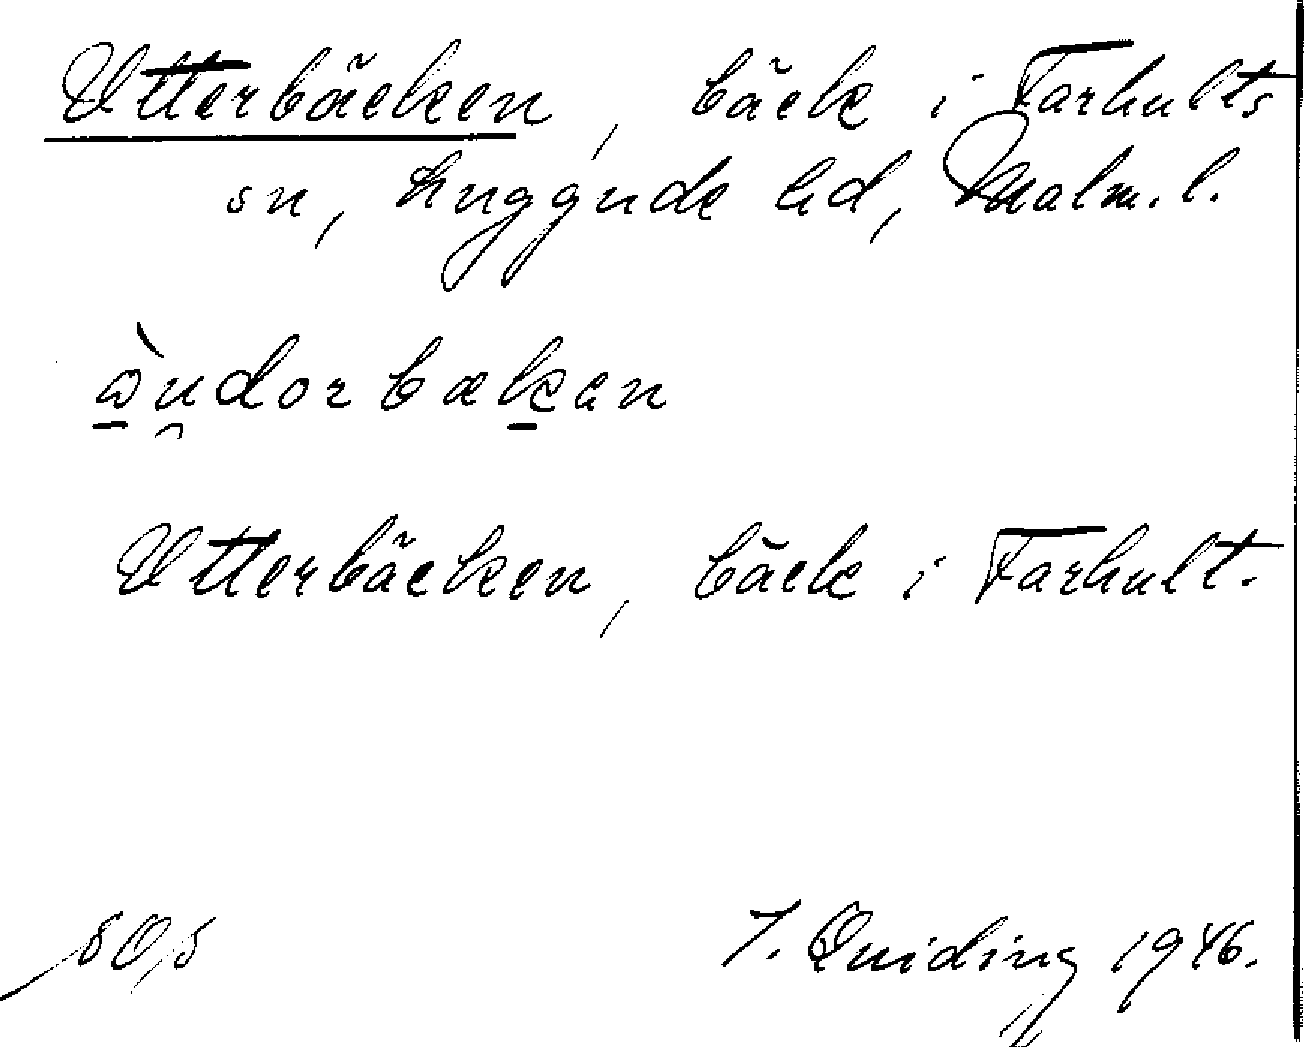 Utterbäcken, bäck i Farhults
sn, Luggude hd, Malm. l.
Utterbäcken, bäck i Farhult.
J. Quiding 1946.